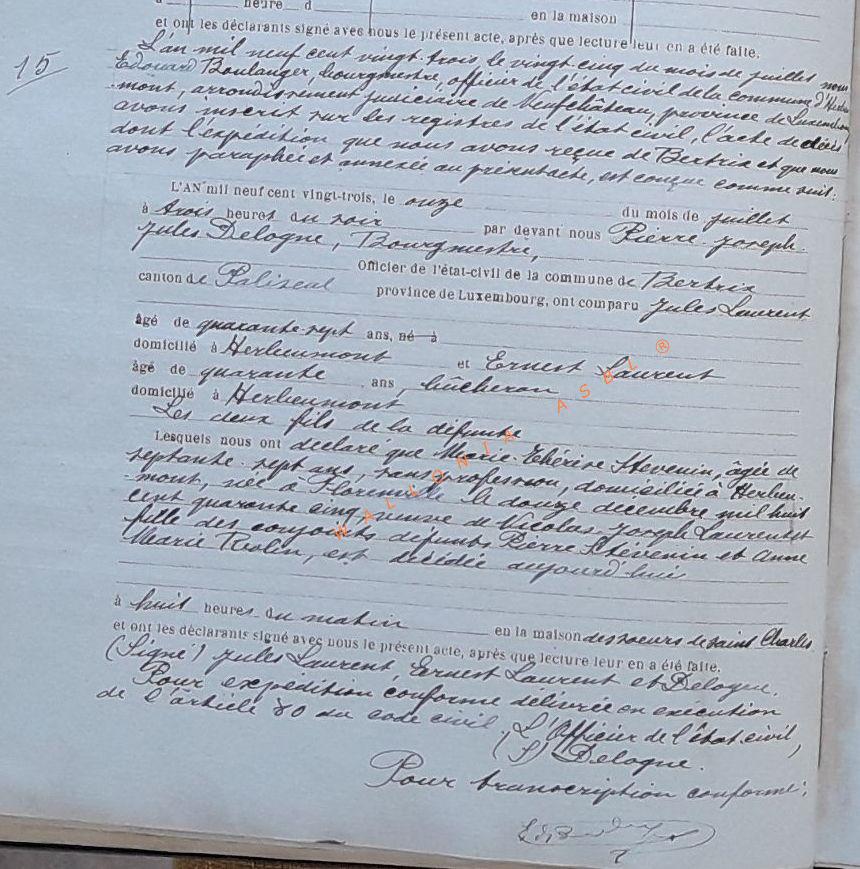 heure d
en la maison
et ont les déclarants signé avec nous le présent acte, après que lecture leur en a été faite.
15
L'an mil neuf cent vingt-trois, le vingt cinq du mois de juillet nous
Edouard Boulanger, bourgmestre, officier de l'état civil de la commune d'Herbeu-
mont, arrondissement judiciaire de Neufchâteau, province de Luxembourg
avons inscrit sur les registres de l'état civil, l'acte de décès
dont l'expédition que nous avons reçue de Bertrix et que nous
avons paraphée et annexée au présent acte, est conçue comme suit:
L'AN mil neuf cent vingt-trois, le onze du mois de juillet
à trois heures du soir par devant nous Pierre-Joseph-
Jules Delogne, Bourgmestre,
Officier de l'état-civil de la commune de Bertrix
canton de Paliseul province de Luxembourg, ont comparu Jules Laurent
âgé de quarante-sept ans, né à
domicilié à Herbeumont et Ernest Laurent
âgé de quarante ans, bûcheron
domicilié à Herbeumont
Les deux fils de la défunte
Lesquels nous ont déclaré que Marie-Thérèse Stevenin, âgée de
septante-sept ans, sans profession, domiciliée à Herbeu-
mont, née à Florenville le douze décembre mil huit
cent quarante cinq, veuve de Nicolas-Joseph Laurent et
fille des conjoints défunts Pierre Stévenin et Anne
Marie Roslin, est décédée aujourd'hui
à huit heures du matin en la maison des soeurs de Saint Charles
et ont les déclarants signé avec nous le présent acte, après que lecture leur en a été faite.
(Signé) Jules Laurent, Ernest Laurent et Delogne.
Pour expédition conforme délivrée en exécution
de l'article 80 du code civil. L'Officier de l'état civil,
(S) Delogne.
Pour transcription conforme:
WALLONIA ASBL ®